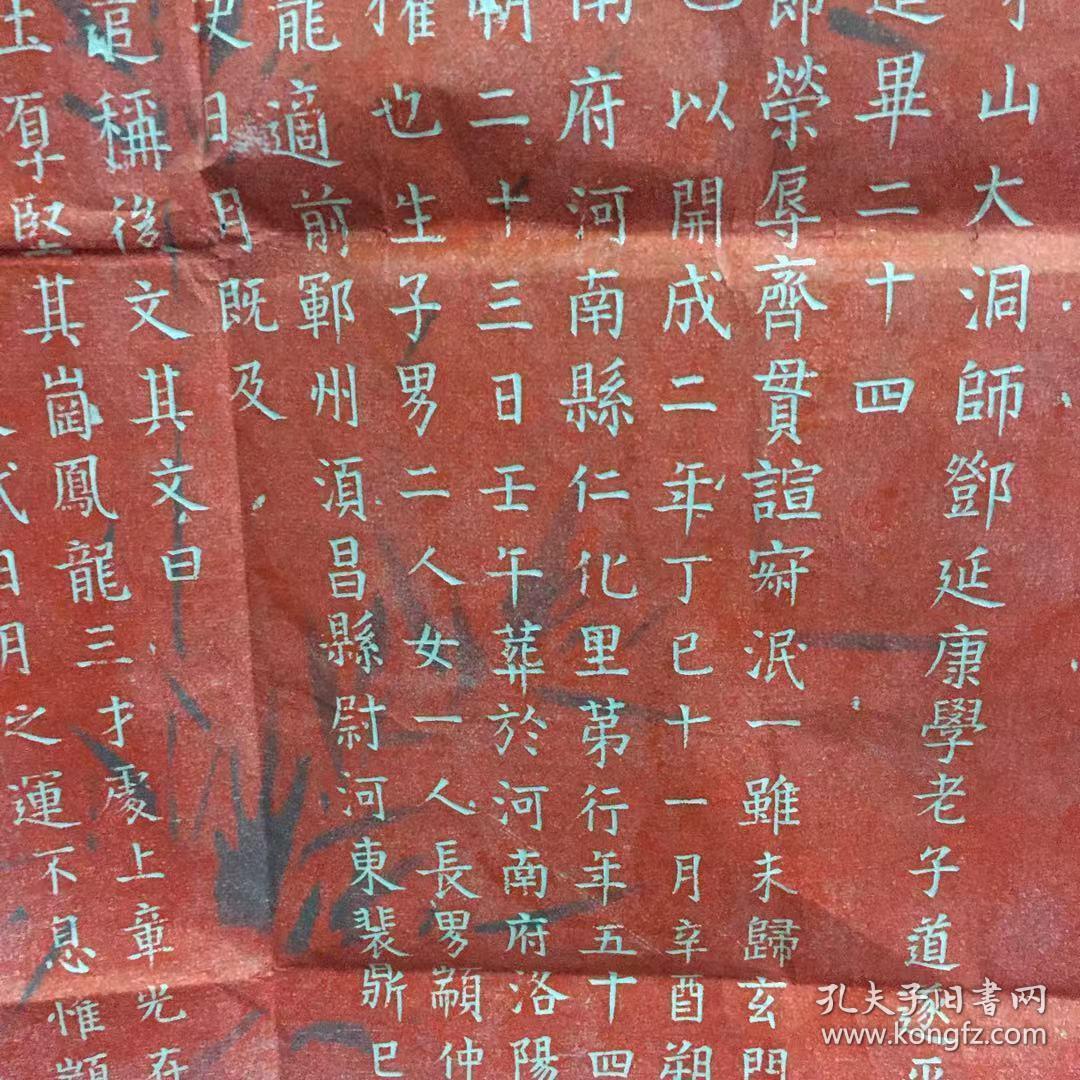 山大洞師鄧延康學老子道
畢二十四
節榮辱齊貫諠寂泯一雖未歸玄門
以開成二年丁巳十一月辛酉朔
府河南縣仁化里第行年五十四
二十三日壬午葬於河南府洛陽
也生子男二人女一人長男顓仲
龍適前鄆州須昌縣尉河東裴鼎巳
日月既及
追稱後文其文曰
其崗鳳龍三才處上章光在
日月之運不息惟
孔夫子旧书网
www.kongfz.com